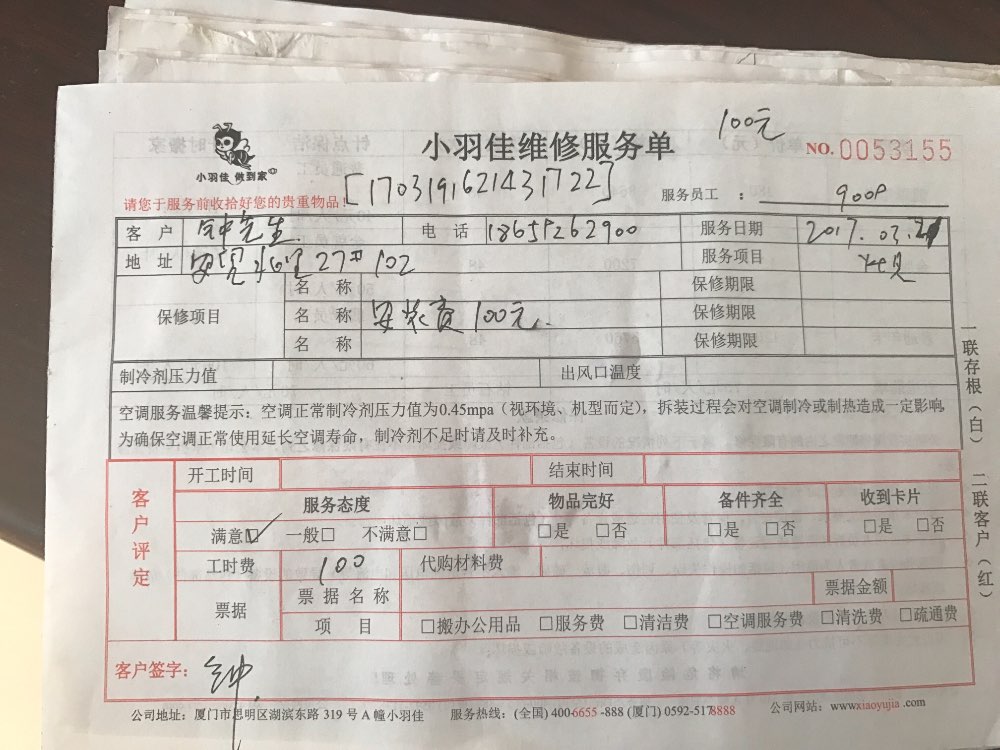 100元
小羽佳维修服务单
NO.0053155
小羽佳 做到家
[1703191621431722]
请您于服务前收拾好您的贵重物品！
服务员工 ： 9008
客 户 钟先生 电 话 18659262900 服务日期 2017.03.21
地 址 27 102 服务项目
名 称 保修期限
保修项目 名 称 安装费 100元. 保修期限
名 称 保修期限
制冷剂压力值 出风口温度
空调服务温馨提示：空调正常制冷剂压力值为0.45mpa（视环境、机型而定），拆装过程会对空调制冷或制热造成一定影响，
为确保空调正常使用延长空调寿命，制冷剂不足时请及时补充。
一联存根（白）
二联客户（红）
客户评定
开工时间 结束时间
服务态度 物品完好 备件齐全 收到卡片
满意☑ 一般□ 不满意□ □是 □否 □是 □否 □是 □否
工时费 100 代购材料费
票据 票据名称 票据金额
项 目 □搬办公用品 □服务费 □清洁费 □空调服务费 □清洗费 □疏通费
客户签字： 钟
公司地址：厦门市思明区湖滨东路 319 号 A 幢小羽佳 服务热线：(全国) 400-6655-888 (厦门) 0592-5178888 公司网站：www.xiaoyujia.com